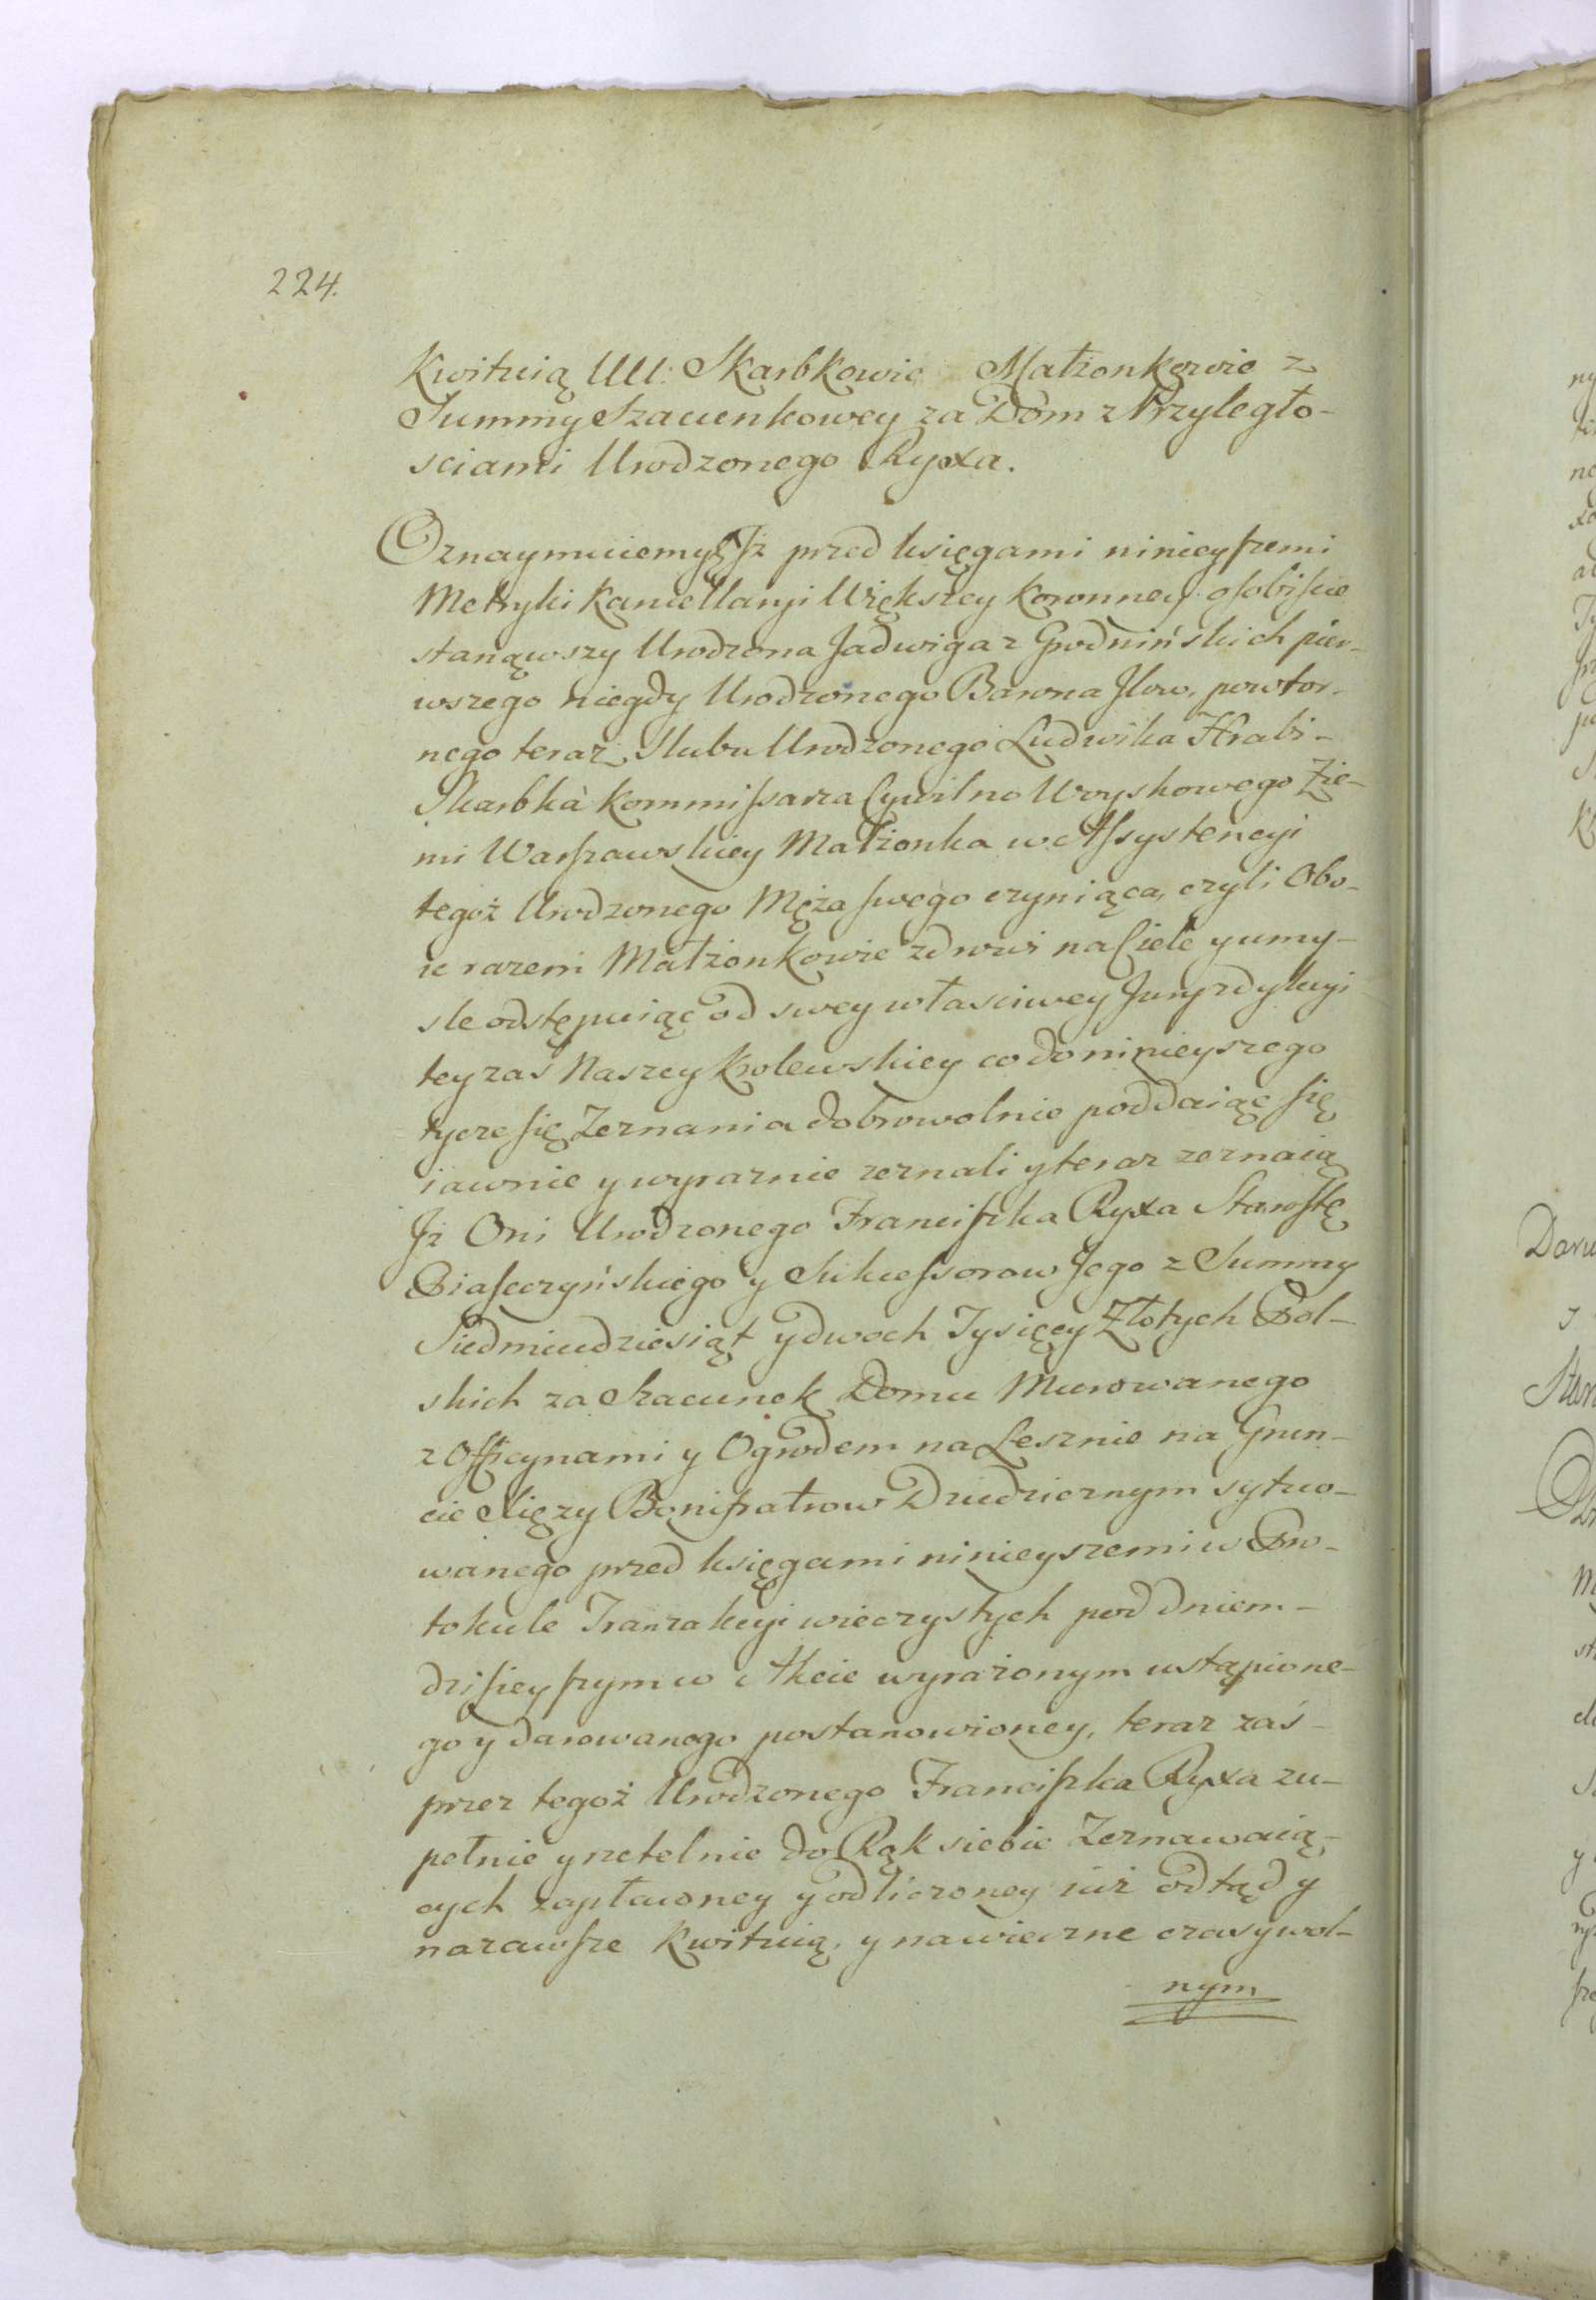 224.
Kwituią UU. Skarbkowie Małżonkowie z
Summy Szacunkowey za Dom z Przyległo-
sciami Urodzonego Ryxa.
Oznaymuiemy Jż przed księgami ninieyszemi
Metryki Kancellaryi Większey Koronney osobiscie
stanąwszy Urodzona Jadwiga z Grodnińskich pier-
wszego niegdy Urodzonego Barona powtor-
nego teraz Slubu Urodzonego Ludwika Hrabi-
Skarbka Kommissarza Cywilno Woyskowego Zie-
mi Warszawskiey Małżonka w Assystencyi
tegoż Urodzonego Męża swego czyniąca, czyli Obo-
ie razem Małżonkowie zdrowi na Ciele y umy-
sle odstępuiąc od swey własciwey Juryzdykcyi
tey zas Naszey Krolewskiey co do ninieyszego
tycze się Zeznania dobrowolnie poddaiąc się
iawnie y wyraznie zeznali y teraz zeznaią
Jż Oni Urodzonego Franciszka Ryxa Starostę
Piaseczyńskiego y Sukcessorow Jego z Summy
Siedmiudziesiąt y dwoch Tysięcy Złotych Pol-
skich za Szacunek Domu Murowanego
z Officynami y Ogrodem na Lesznie na Grun-
cie Xięży Bonifratrow Dziedzicznym sytuo-
wanego przed księgami ninieyszemi w Pro-
tokule Tranzakcyi wieczystych pod dniem-
dzisieyszym w Akcie wyrażonym ustąpione-
go y darowanego postanowioney, teraz zaś-
przez tegoż Urodzonego Franciszka Ryxa zu-
pełnie y rzetelnie do Rąk siebie Zeznawaią-
cych zapłaconey y odliczoney iuż odtąd y
nazawsze Kwituią, y na wieczne czasy wol-
nym